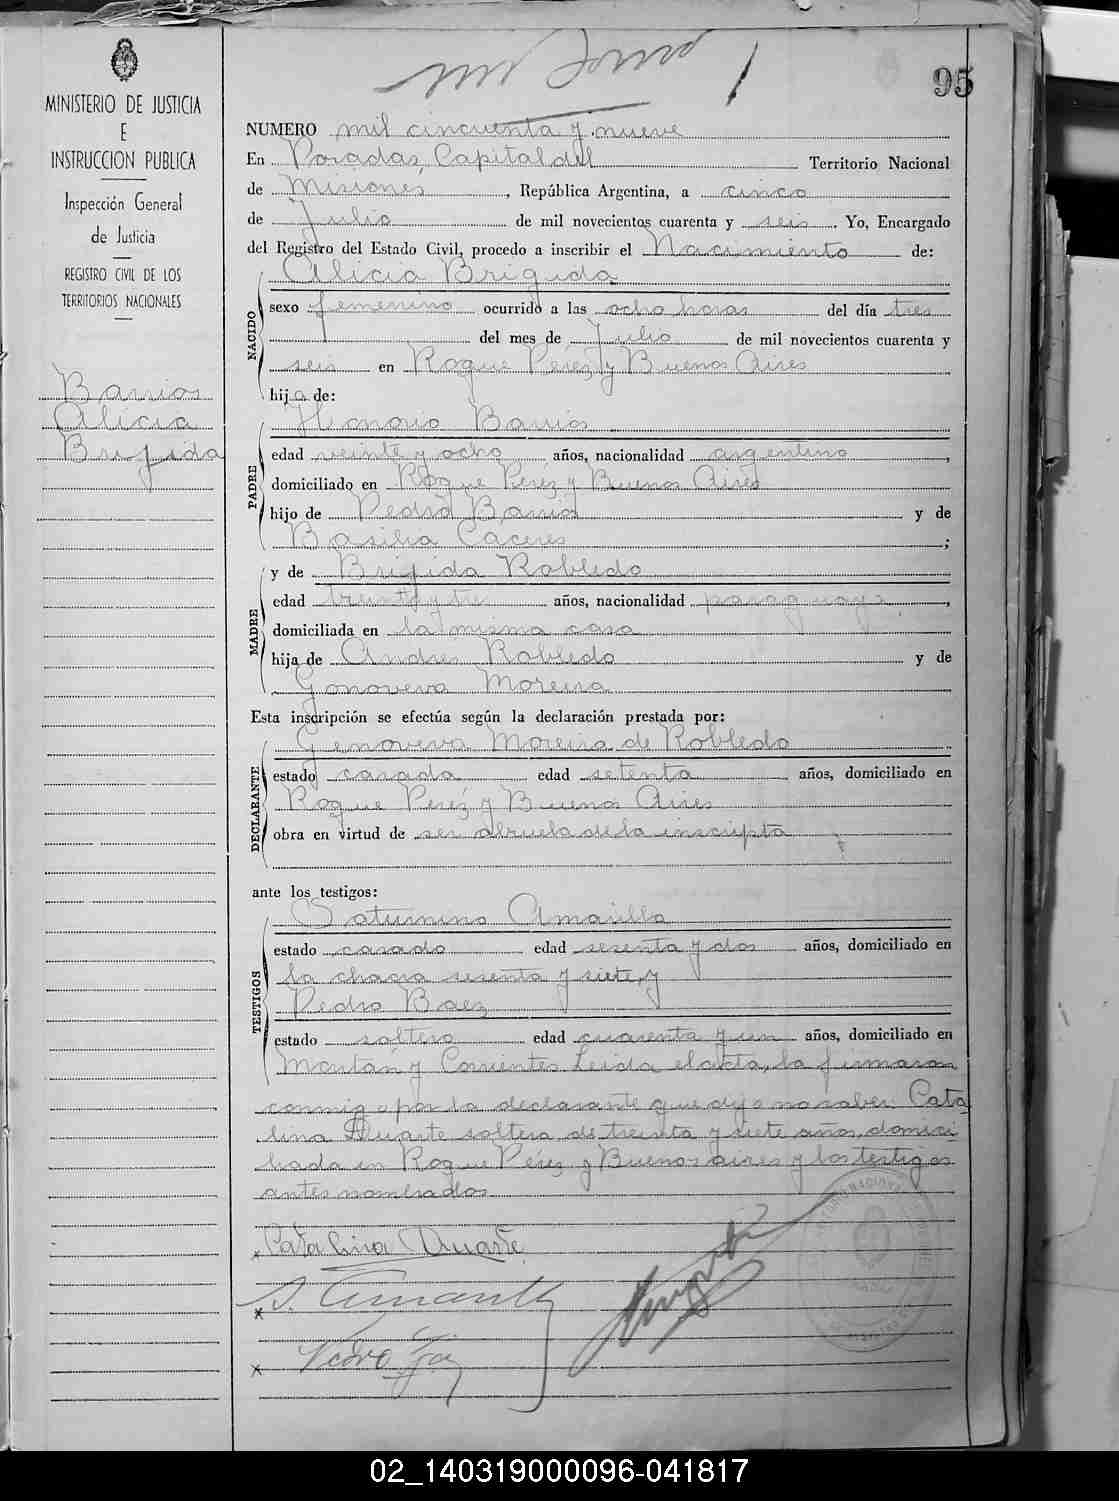 95
MINISTERIO DE JUSTICIA
E
INSTRUCCION PUBLICA
Inspección General
de Justicia
REGISTRO CIVIL DE LOS
TERRITORIOS NACIONALES
Barrios
Alicia
Brigida
NUMERO mil cincuenta y nueve
En Posadas, Capital del Territorio Nacional
de Misiones, República Argentina, a cinco
de Julio de mil novecientos cuarenta y seis. Yo, Encargado
del Registro del Estado Civil, procedo a inscribir el Nacimiento de:
NACIDO
Alicia Brigida
sexo femenino ocurrido a las ocho horas del día tres
del mes de Julio de mil novecientos cuarenta y
seis en Roque Pérez y Buenos Aires
hija de:
PADRE
Honorio Barrios
edad veinte y ocho años, nacionalidad argentino,
domiciliado en Roque Pérez y Buenos Aires
hijo de Pedro Barrios y de
Basilia Caceres;
MADRE
y de Brigida Robledo
edad treinta y tres años, nacionalidad paraguaya,
domiciliada en la misma casa
hija de Andres Robledo y de
Genoveva Moreira
Esta inscripción se efectúa según la declaración prestada por:
DECLARANTE
Genoveva Moreira de Robledo
estado casada edad setenta años, domiciliado en
Roque Pérez y Buenos Aires
obra en virtud de ser abuela de la inscripta
ante los testigos:
TESTIGOS
Saturnino Amarilla
estado casado edad sesenta y dos años, domiciliado en
la chacra sesenta y siete, y
Pedro Baez
estado soltero edad cuarenta y un años, domiciliado en
y Corrientes. Leida el acta, la firmaron
conmigo por la declarante que dijo no saber Cata
lina Duarte soltera, de treinta y siete años, domici
liada en Roque Pérez y Buenos aires y los testigos
antes nombrados
x Catalina Duarte
x S. Amarilla
x Pedro
02_140319000096-041817